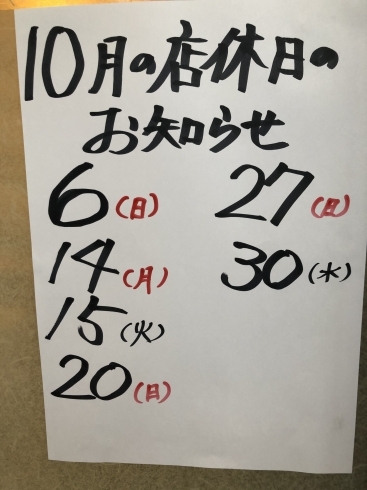 10月の店休日の
お知らせ
6(日)
14(月)
15(火)
20(日)
27(日)
30(水)